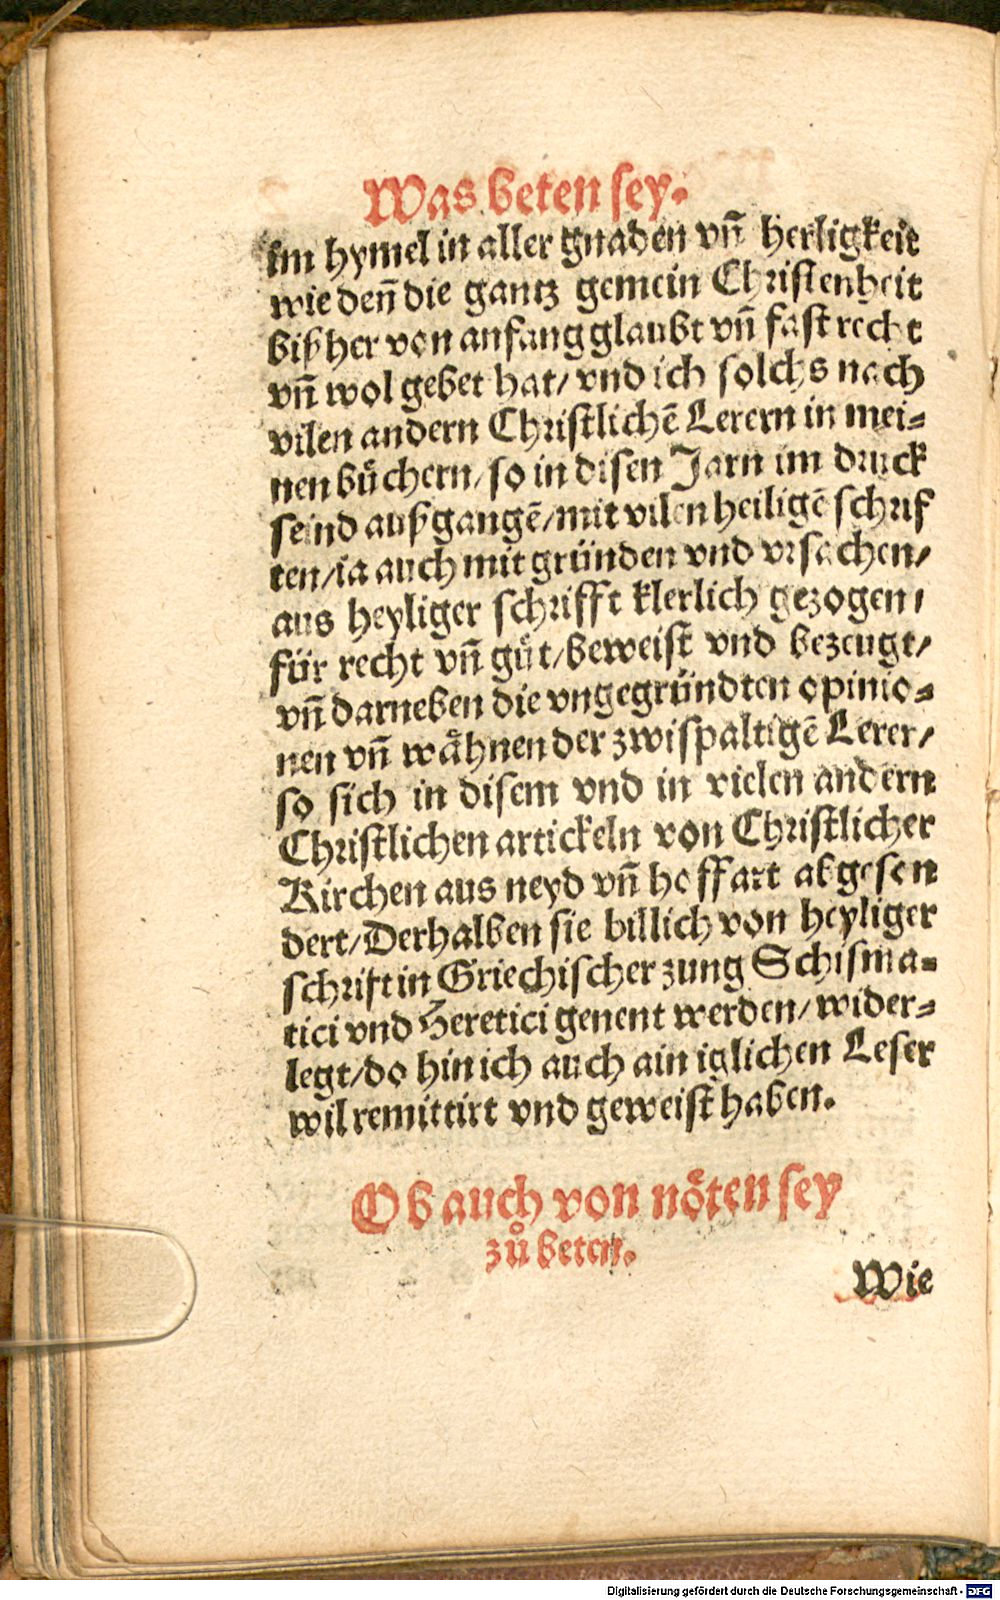 Was beten sey.
im hymel in aller gnaden vñ herligkeit
wie deñ die gantz gemein Christenheit
bißher von anfang glaubt vñ fast recht
vñ wol gebet hat/ vnd ich solchs nach
vilen andern Christlichẽ Lerern in mei⸗
nen buͤchern/ so in disen Jarn im druck
seind außgangẽ/ mit vilen heiligẽ schrif
ten/ ia auch mit gründen vnd vrsachen/
aus heyliger schrifft klerlich gezogen/
für recht vñ guͤt/ beweist vnd bezeugt/
vñ darneben die vngegründten opinio⸗
nen vñ waͤhnen der zwispaltigẽ Lerer/
so sich in disem vnd in vielen andern
Christlichen artickeln von Christlicher
Kirchen aus neyd vñ hoffart abgesen
dert/ Derhalben sie billich von heyliger
schrift in Griechischer zung Schisma⸗
tici vnd Heretici genent werden/ wider⸗
legt/ do hin ich auch ain iglichen Leser
wil remittirt vnd geweist haben.
Ob auch von noͤten sey
zuͦ beten.
Wie
Digitalisierung gefördert durch die Deutsche Forschungsgemeinschaft - DFG